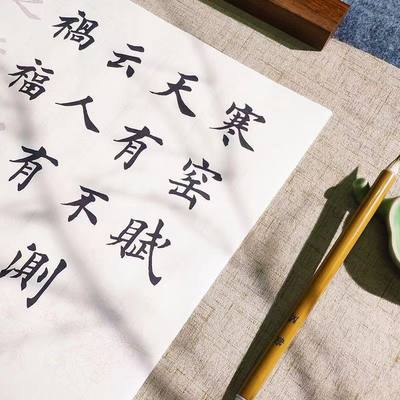 寒窑賦
天有不測
云人有
禍福